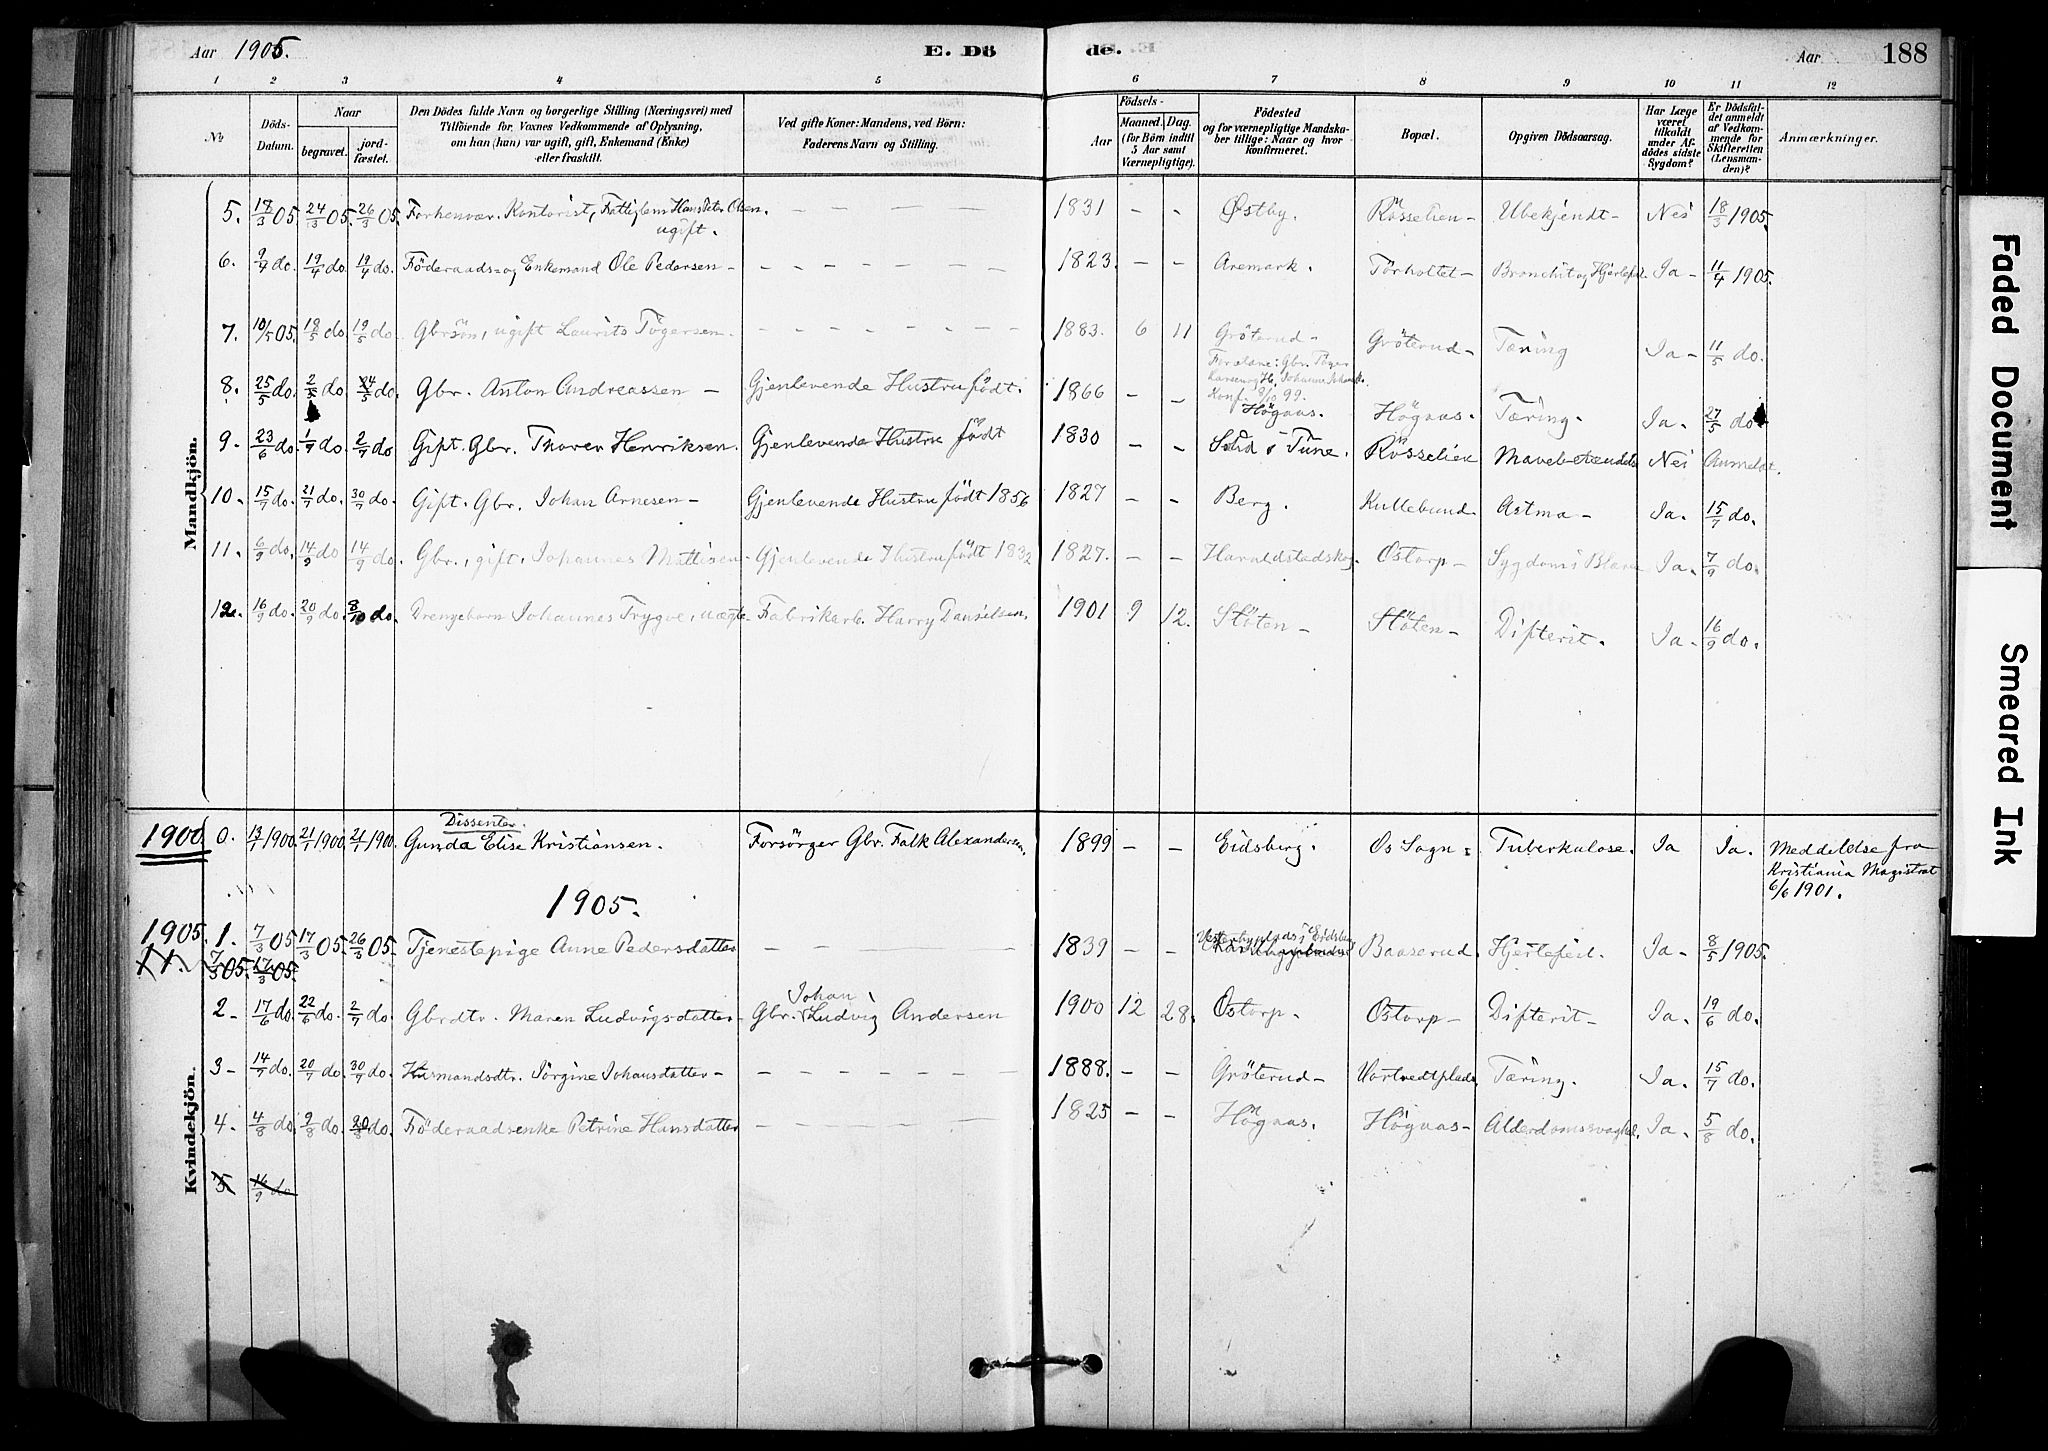 Aar 1905. E. Dö de. Aar 188
1 2 3 4 5 6 7 8 9 10 11 12
No Döds-Datum. Naar begravet. jord-fæstet. Den Dödes fulde Navn og borgerlige Stilling (Næringsvei) med Tilföiende for Voxnes Vedkommende af Oplysning, om han (hun) var ugift, gift, Enkemand (Enke) eller fraskilt. Ved gifte Koner: Mandens, ved Börn: Faderens Navn og Stilling. Födsels- Aar Maaned. Dag. (for Börn indtil 5 Aar samt Værnepligtige). Födested og for værnepligtige Mandska-ber tillige: Naar og hvor konfirmeret. Bopæl. Opgiven Dödsaarsag. Har Læge været tilkaldt under Af-dödes sidste Sygdom? Er Dödsfal-det anmeldt af Vedkom-mende for Skifteretten (Lensman-den)? Anmærkninger.
Mandkjön.
5. 18/3 05. 24/3 05. 26/3 05. Forhenvær. Kontorist, Fattiglem Hans Peter Olsen. ugift. — — — — 1831 - - Østby. Rösselien - Ubekjendt - Nei 18/3 1905.
6. 9/4 do. 19/4 do. 19/4 do. Föderaads- og Enkemand Ole Pedersen - — — — — 1823. - - Aremark. Törholtet - Bronchit og Hjertefeil. Ja - 11/4 1905.
7. 10/5 05. 18/5 do 19/5 do. Gbrsön, ugift Laurits Tögersen. — — — — 1883. 6 11 Gröterud - Gröterud - Tæring Ja - 11/5 do.
Forældre: Gbr. Töger
Konf. 8/10 99.
8. 25/5 do. 2/5 do 24/5 do. Gbr. Anton Andreassen - Gjenlevende Hustru födt. 1866 - - Högaas. Högaas. Tæring. Ja. 27/5 do.
9. 23/6 do. 1/7 do 2/7 do Gift. Gbr. Thorer Henriksen. Gjenlevende Hustru födt 1830 - - i Tune. Rösselien Nei Anmeldt.
10. 15/7 do. 21/7 do. 30/7 do. Gift. Gbr. Johan Arnesen - Gjenlevende Hustru födt 1856 1827 - - Berg. Kullebund Astma - Ja. 15/7 do.
11. 6/9 do. 14/9 do 14/9 do. Gbr., gift. Johannes Mattisen - Gjenlevende Hustru födt 1832 1827. - - Haraldstadskog. Ostorp - Sygdom i Blæren Ja. 7/9 do.
12. 16/9 do. 20/9 do. 8/10 do. Drengebarn Johannes Trygve, uægte - Fabrikarb. Harry Danielsen. 1901 9 12. Stöten - Stöten - Difterit. Ja - 16/9 do.
Kvindekjön.
Dissenter.
1900. 0. 13/7 1900. 21/7 1900. 21/7 1900. Gunda Elise Kristiansen. Forsörger Gbr. Falk Alexandersen. 1899 - - Eidsberg. Os Sogn - Tuberkulose. Ja Ja. Meddelelse fra
Kristiania Magistrat
6/6 1901.
1905.
1905. 1. 7/3 05 17/3 05. 26/3 05. Tjenestepige Anne Pedersdatter — — — — 1839 - - i Eidsberg Baaserud. Hjertefeil. Ja - 8/5 1905.
11. 7/3 05. 17/3 05.
2 - 17/6 do 22/6 do. 2/7 do. Gbrdtr. Maren Ludvigsdatter - Gbr. Johan Ludvig Andersen 1900 12 28. Ostorp. Ostorp - Difterit - Ja. 19/6 do.
3 - 14/7 do. 20/7 do. 30/7 do. Husmandsdtr. Jörgine Johansdatter - — — — — 1888. - - Gröterud - Vortvedtplads. Tæring. Ja. 15/7 do.
4. 4/8 do. 9/8 do. 20/8 do. Föderaadsenke Petrine Hansdatter — — — — 1825 - - Högaas. Högaas - Alderdomssvaghed. Ja. 5/8 do.
5 16/9 do
Faded Document
Smeared Ink